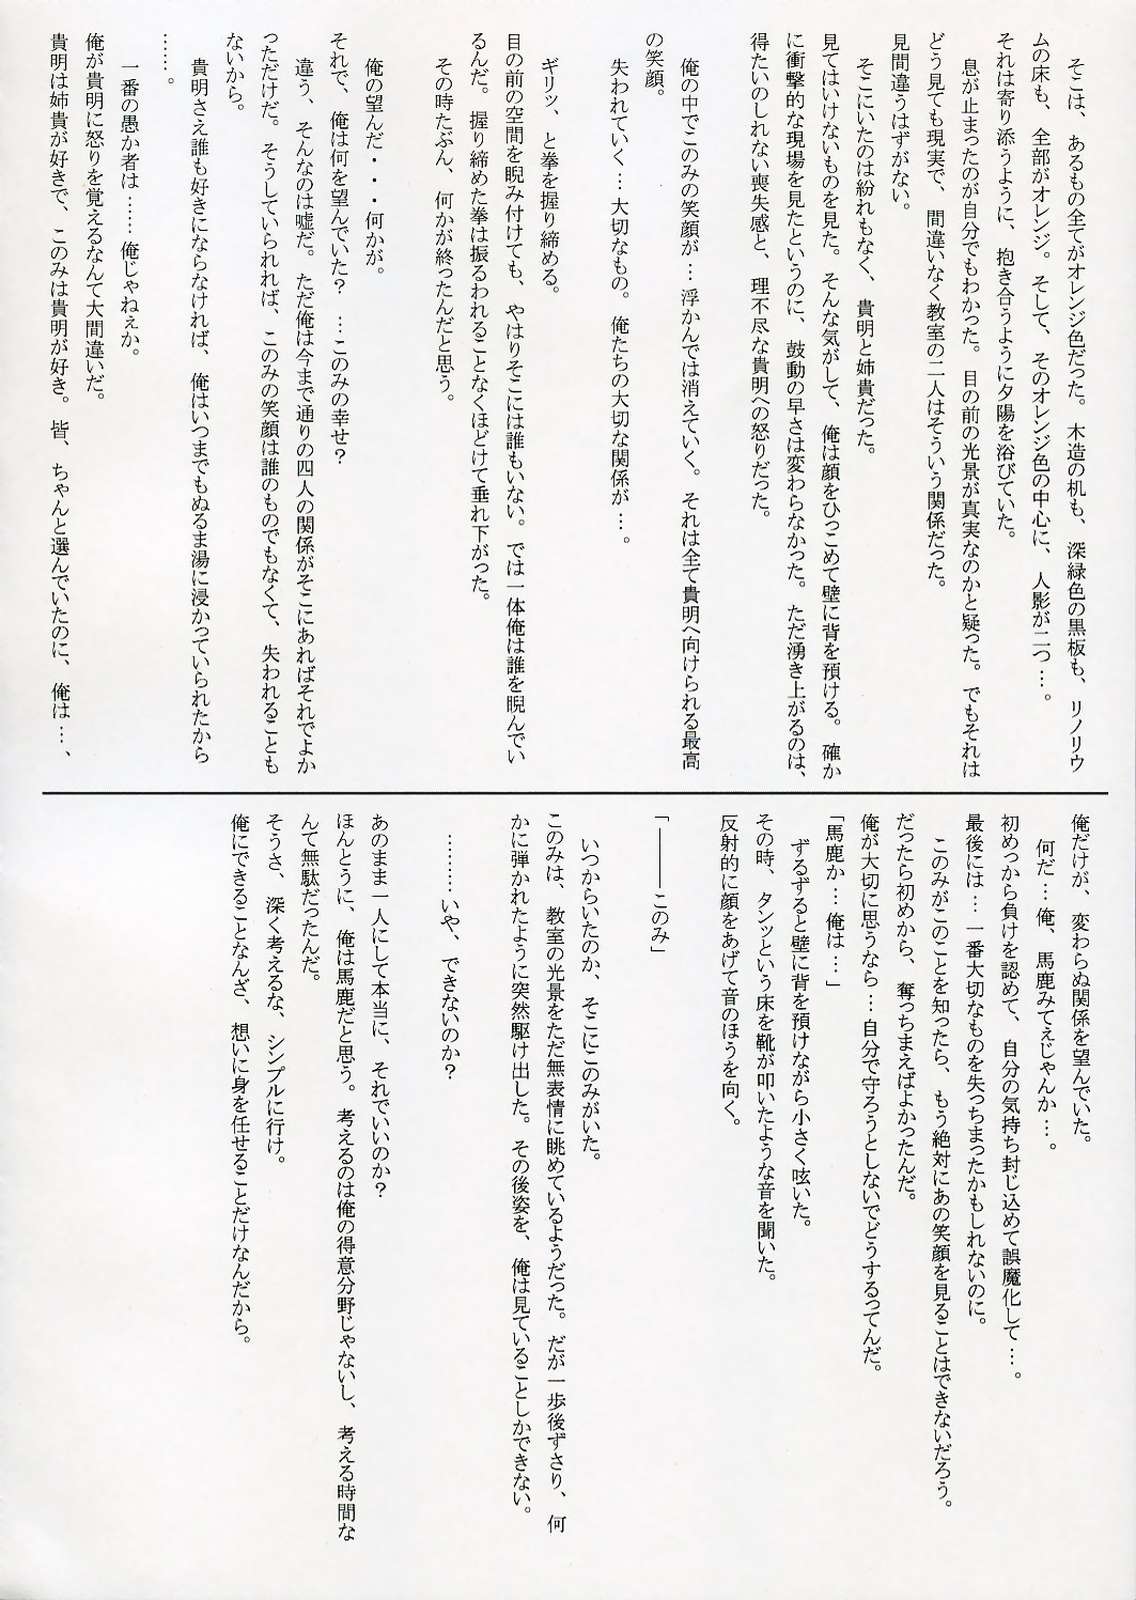 そこは、あるもの全てがオレンジ色だった。木造の机も、深緑色の黒板も、リノリウ
ムの床も、全部がオレンジ。そして、そのオレンジ色の中心に、人影が二つ…。
それは寄り添うように、抱き合うように夕陽を浴びていた。
　息が止まったのが自分でもわかった。目の前の光景が真実なのかと疑った。でもそれは
どう見ても現実で、間違いなく教室の二人はそういう関係だった。
見間違うはずがない。
　そこにいたのは紛れもなく、貴明と姉貴だった。
見てはいけないものを見た。そんな気がして、俺は顔をひっこめて壁に背を預ける。確か
に衝撃的な現場を見たというのに、鼓動の早さは変わらなかった。ただ湧き上がるのは、
得たいのしれない喪失感と、理不尽な貴明への怒りだった。
　俺の中でこのみの笑顔が…浮かんでは消えていく。それは全て貴明へ向けられる最高
の笑顔。
　失われていく…大切なもの。俺たちの大切な関係が…。
　ギリッ、と拳を握り締める。
目の前の空間を睨み付けても、やはりそこには誰もいない。では一体俺は誰を睨んでい
るんだ。握り締めた拳は振るわれることなくほどけて垂れ下がった。
　その時たぶん、何かが終ったんだと思う。
　俺の望んだ・・・何かが。
それで、俺は何を望んでいた？　…このみの幸せ？
　違う、そんなのは嘘だ。ただ俺は今まで通りの四人の関係がそこにあればそれでよか
っただけだ。そうしていられれば、このみの笑顔は誰のものでもなくて、失われることも
ないから。
　貴明さえ誰も好きにならなければ、俺はいつまでもぬるま湯に浸かっていられたから
……。
　一番の愚か者は……俺じゃねぇか。
俺が貴明に怒りを覚えるなんて大間違いだ。
貴明は姉貴が好きで、このみは貴明が好き。皆、ちゃんと選んでいたのに、俺は…、
俺だけが、変わらぬ関係を望んでいた。
　何だ…俺、馬鹿みてえじゃんか…。
初めっから負けを認めて、自分の気持ち封じ込めて誤魔化して…。
最後には…一番大切なものを失っちまったかもしれないのに。
　このみがこのことを知ったら、もう絶対にあの笑顔を見ることはできないだろう。
だったら初めから、奪っちまえばよかったんだ。
俺が大切に思うなら…自分で守ろうとしないでどうするってんだ。
「馬鹿か…俺は…」
　ずるずると壁に背を預けながら小さく呟いた。
その時、タンッという床を靴が叩いたような音を聞いた。
反射的に顔をあげて音のほうを向く。
「―――このみ」
　いつからいたのか、そこにこのみがいた。
このみは、教室の光景をただ無表情に眺めているようだった。だが一歩後ずさり、何
かに弾かれたように突然駆け出した。その後姿を、俺は見ていることしかできない。
………いや、できないのか？
あのまま一人にして本当に、それでいいのか？
ほんとうに、俺は馬鹿だと思う。考えるのは俺の得意分野じゃないし、考える時間な
んて無駄だったんだ。
そうさ、深く考えるな、シンプルに行け。
俺にできることなんざ、想いに身を任せることだけなんだから。